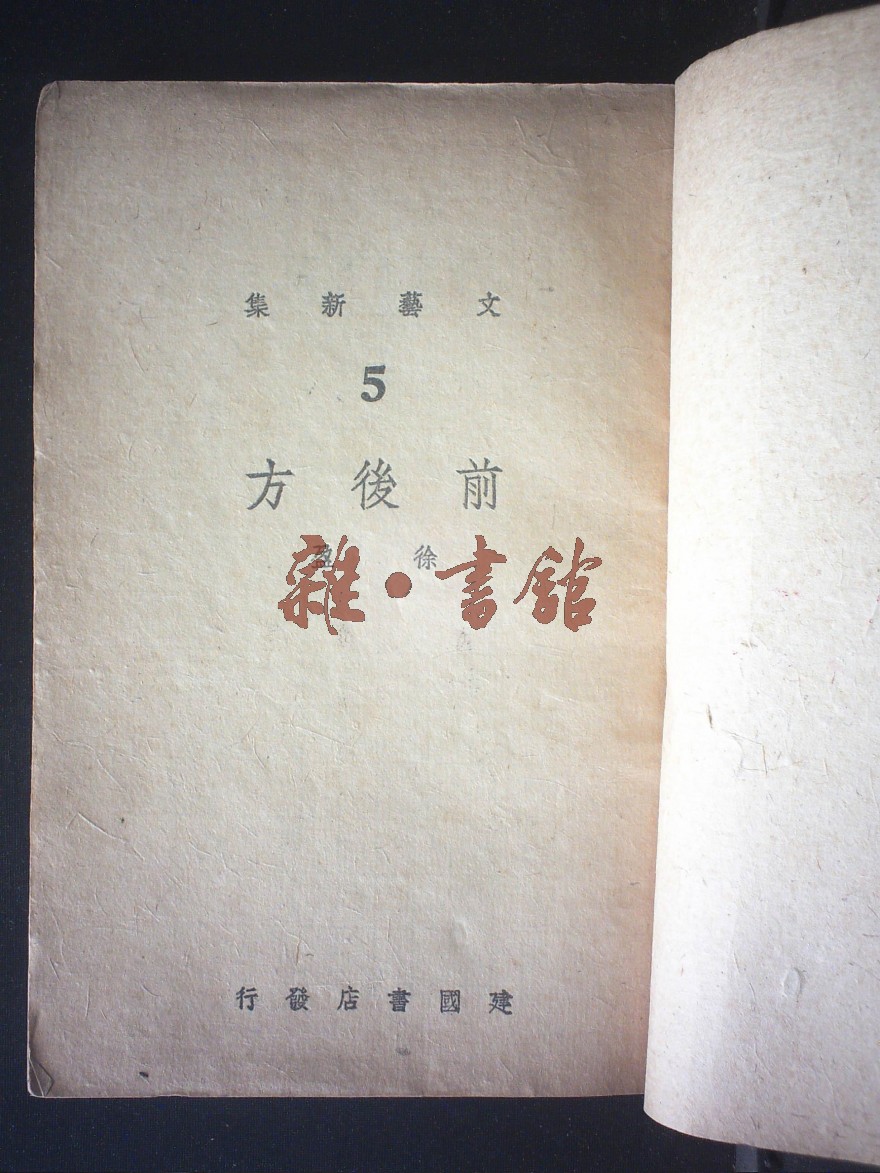 文藝新集
5
前後方
徐盈
雜·書館
建國書店發行